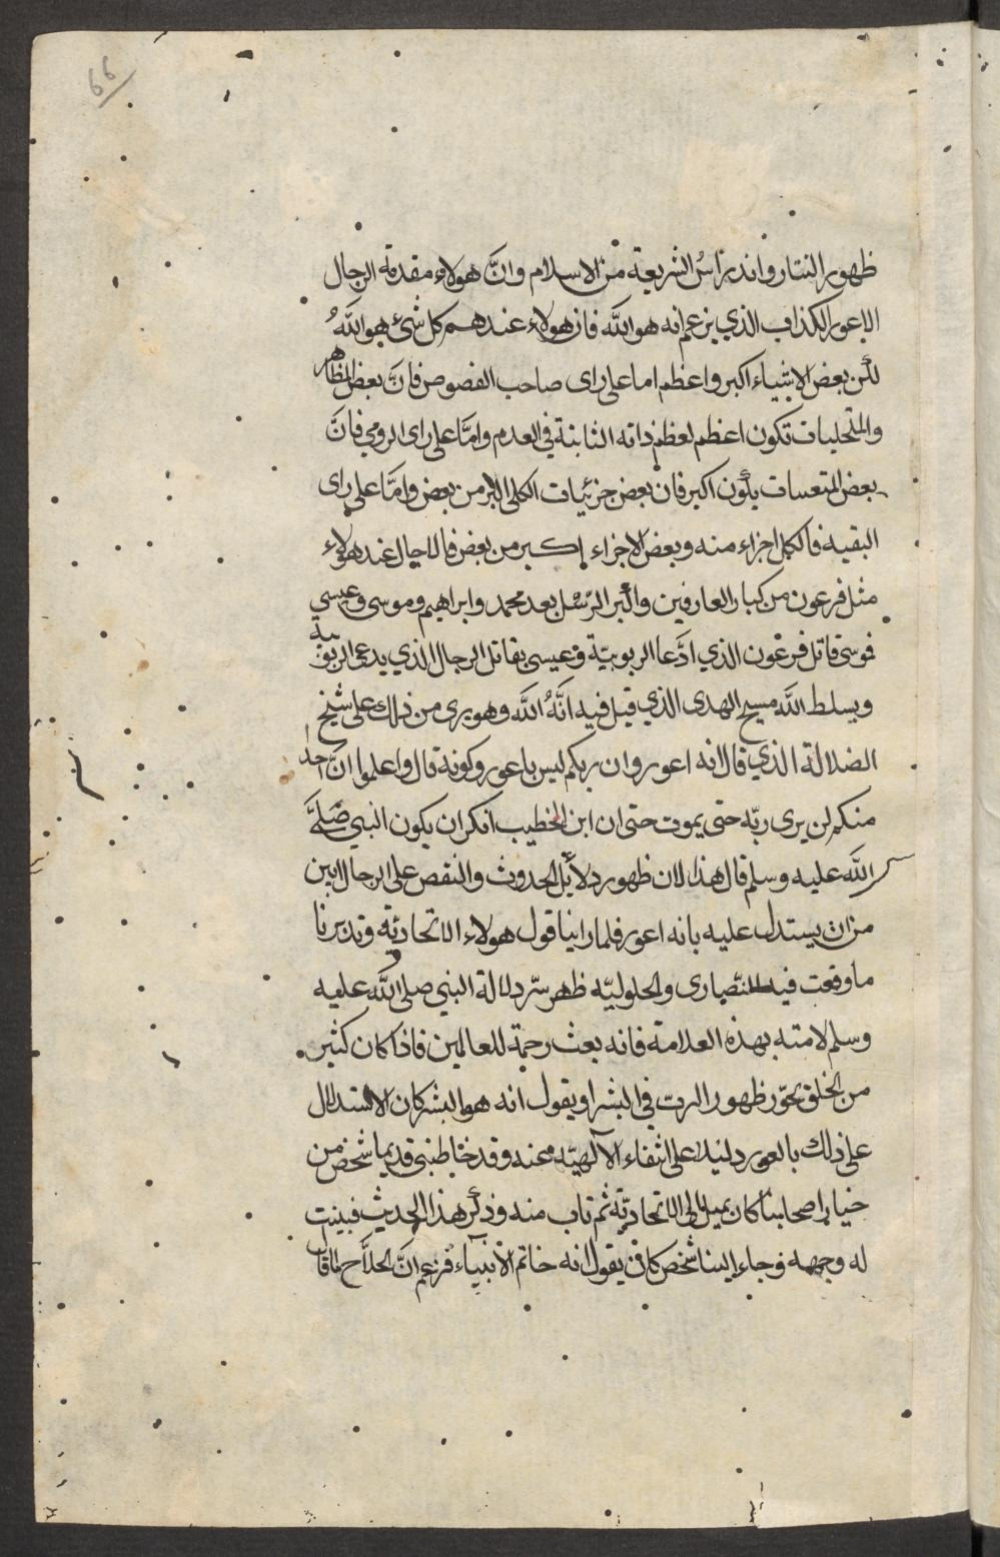 ٦٦
ظهور التتار واندراسُ الشريعة من الاسلام وانَّ هولاء مقدمة الرجال
الاعور الكذاب الذي يزعم انه هو اللّه فان هولاء عندهم كل شئ هو اللّهُ
لكن بعض الاشياء اكبر واعظم اما على راى صاحب الفصوص فانَّ بعض المظاهر
والمتجليات تكون اعظم لعظم ذاته الثابتة في العدم وامّا على راى الرومي فانَّ
بعض المتعسات يكون اكبر فان بعض جزئيات الكلى اكبر من بعض وامّا على راى
البقيه فالكل اجزاء منه وبعض الاجزاء اكبر من بعض فالدجال عند هولاء
مثل فرعون من كبار العارفين واكبر الرسُل بعد محمد وابراهيم وموسى وعيسي
فموسى قاتل فرعون الذي ادَّعا الربوبيّة وعيسى يقاتل الرجال الذي يدعى الربوبية
ويسلط اللّه مسيح الهدى الذي قيل فيه انَّهُ اللّه وهو برى من ذلك على شيخ
الضلالة الذي قال انه اعور وان ربكم ليس باعور وكونه قال واعلموا انَّ احدا
منكم لن يرى ربّه حتى يموت حتى ان ابن الخطيب انكر ان يكون النبي صَلَّى
اللّه عليه وسلم قال هذا لان ظهور دلائل الحدوث والنقص على الرجال ابين
من ان يستدل عليه بانه اعور فلما راينا قول هولاء الاتحاديّة وتدبرنا
ما وقعت فيه النصّارى والحلوليّه ظهر سّر دلالة النبي صلى اللّه عليه
وسلم لامته بهذه العلامة فانه بعث رحمة للعالمين فاذا كان كثير
من الخلق يجّوز ظهور الرب في البشر او يقول انه هو البشر كان الاستدلال
على ذلك بالعور دليلا على انتفاء الآلهيّه عنه وقد خاطبني قديما شخص من
خيار اصحابنا كان يميل الى الاتحاديّة ثم تاب منه وذكر هذا الحديث فبينت
له وجهه وجاء الينا شخص كان يقول انه خاتم الأنبياء فزعم انَّ الحلاَّج لما قال